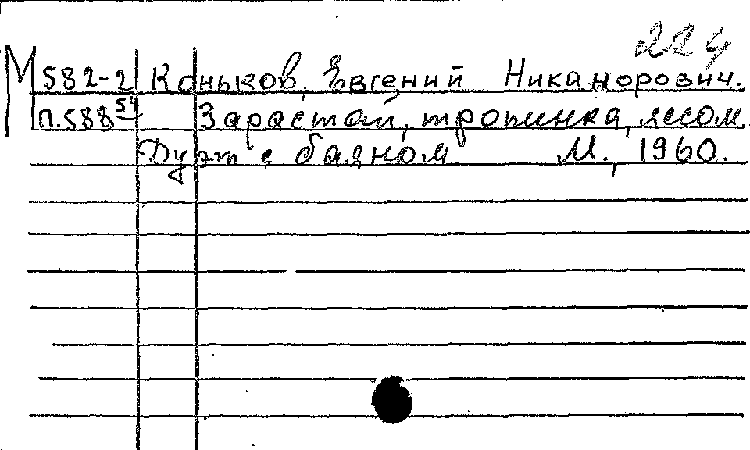 224
М 582-2 Коньков, Евгений Никанорович.
п.588 54 Зарастай, тропинка, лесом
Дуэт с баяном М., 1960.